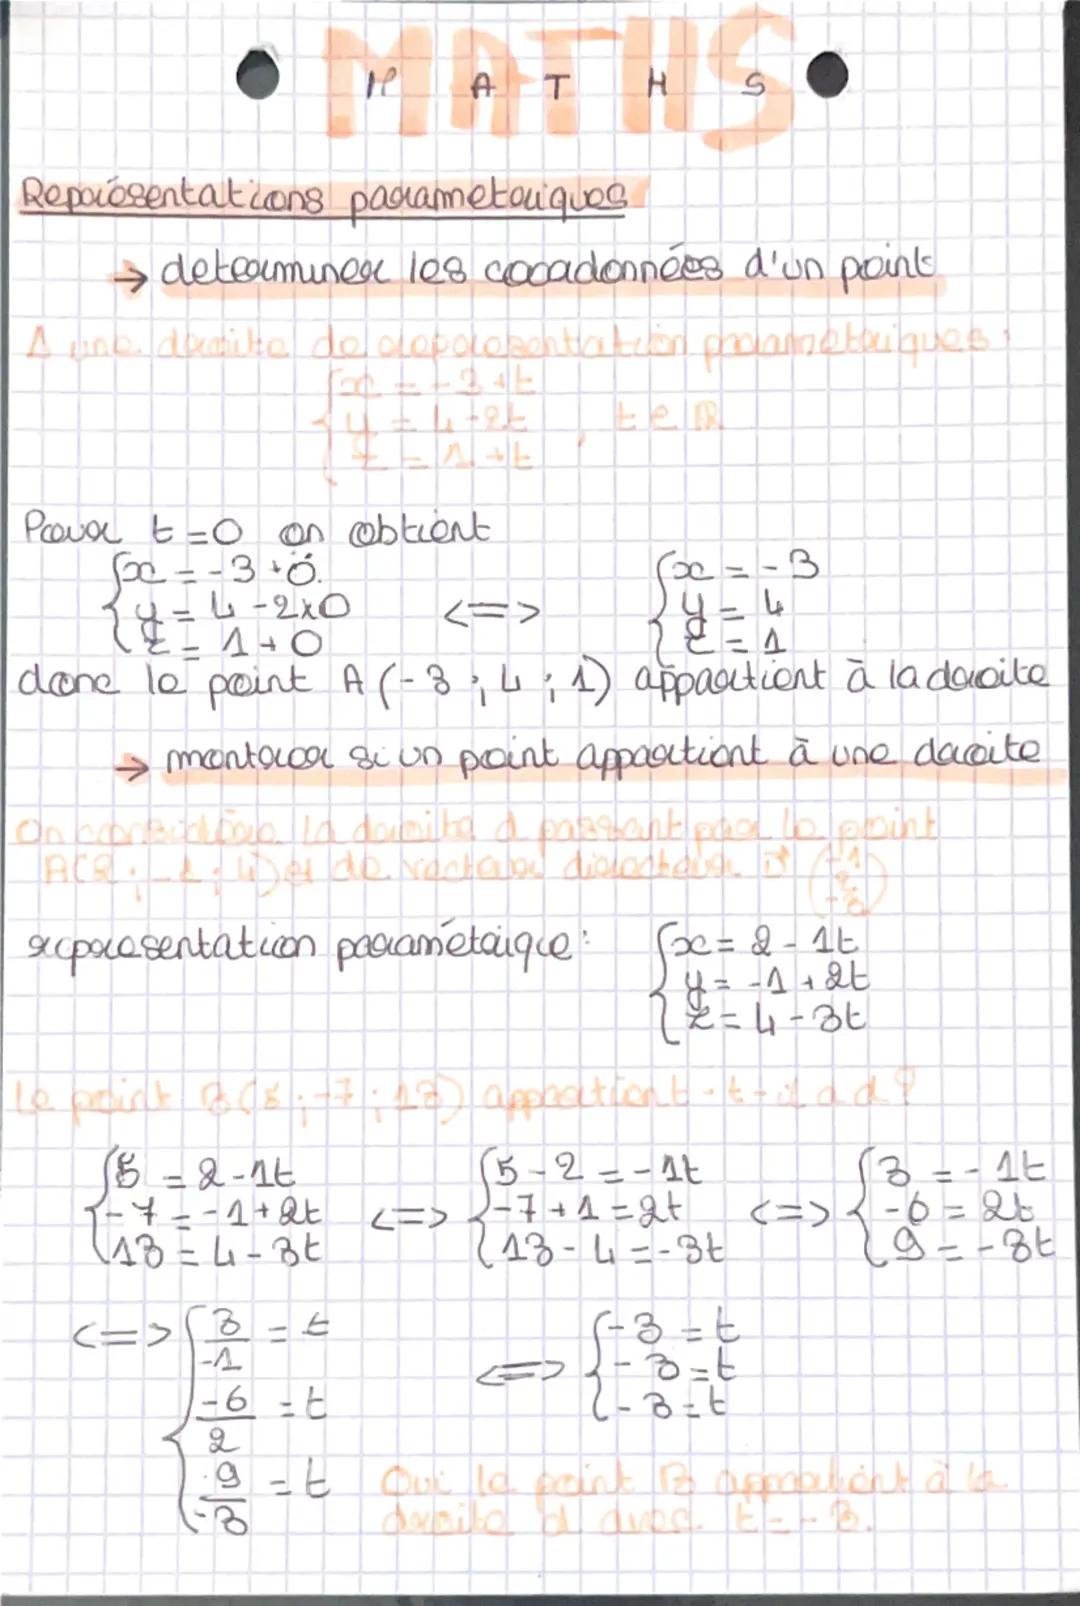 MATHS
M A T H S
Représentations parametriques
→ determiner les coordonnées d'un point
Δ une droite de representation parametriques :
{x = -3+t
{y = 4-2t , t ∈ ℝ
{z = 1+t
Pour t=0 on obtient
{x = -3+0 {x = -3
{y = 4-2x0 <=> {y = 4
{z = 1+0 {z = 1
donc le point A (-3 ; 4 ; 1) appartient à la droite
→ montrer si un point appartient à une droite
On considère la droite d passant par le point
A(2 ; -1 ; 4) et de vecteur directeur (-1
2
-3)
representation paramétrique : {x = 2 - 1t
{y = -1 + 2t
{z = 4 - 3t
le point B(5 ; -7 ; 13) appartient-t-il a d ?
{5 = 2-1t {5-2 = -1t {3 = -1t
{-7 = -1+2t <=> {-7+1 = 2t <=> {-6 = 2t
{13 = 4-3t {13-4 = -3t {9 = -3t
<=> {3/-1 = t <=> {-3 = t
{-6/2 = t {-3 = t
{9/-3 = t {-3 = t
Oui le point B appartient à la
droite d avec t = -3.